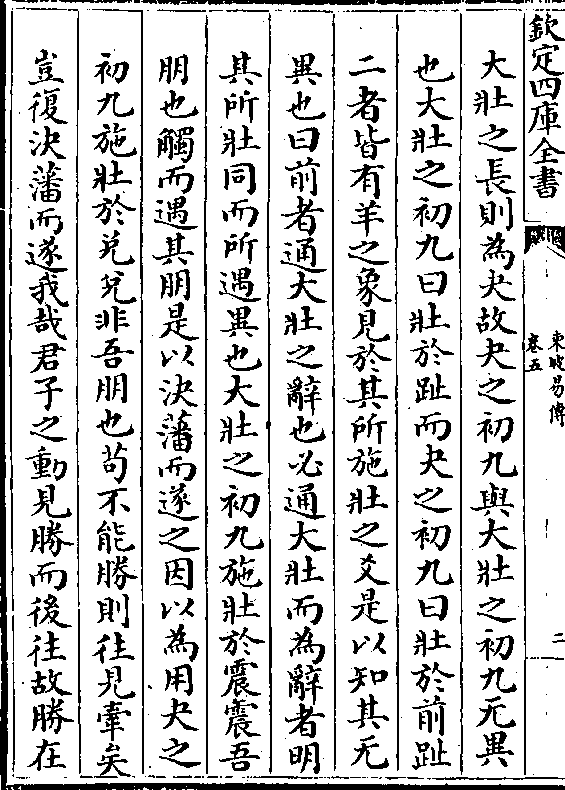 欽定四庫全書
東坡易傳
卷五
二
大壯之長則為夬故夬之初九與大壯之初九无異
也大壯之初九曰壯於趾而夬之初九曰壯於前趾
二者皆有羊之象見於其所施壯之爻是以知其无
異也曰前者通大壯之辭也必通大壯而為辭者明
其所壯同而所遇異也大壯之初九施壯於震震吾
朋也觸而遇其朋是以決藩而遂之因以為用夬之
初九施壯於兌兌非吾朋也苟不能勝則往見牽矣
豈復決藩而遂我哉君子之動見勝而後往故勝在